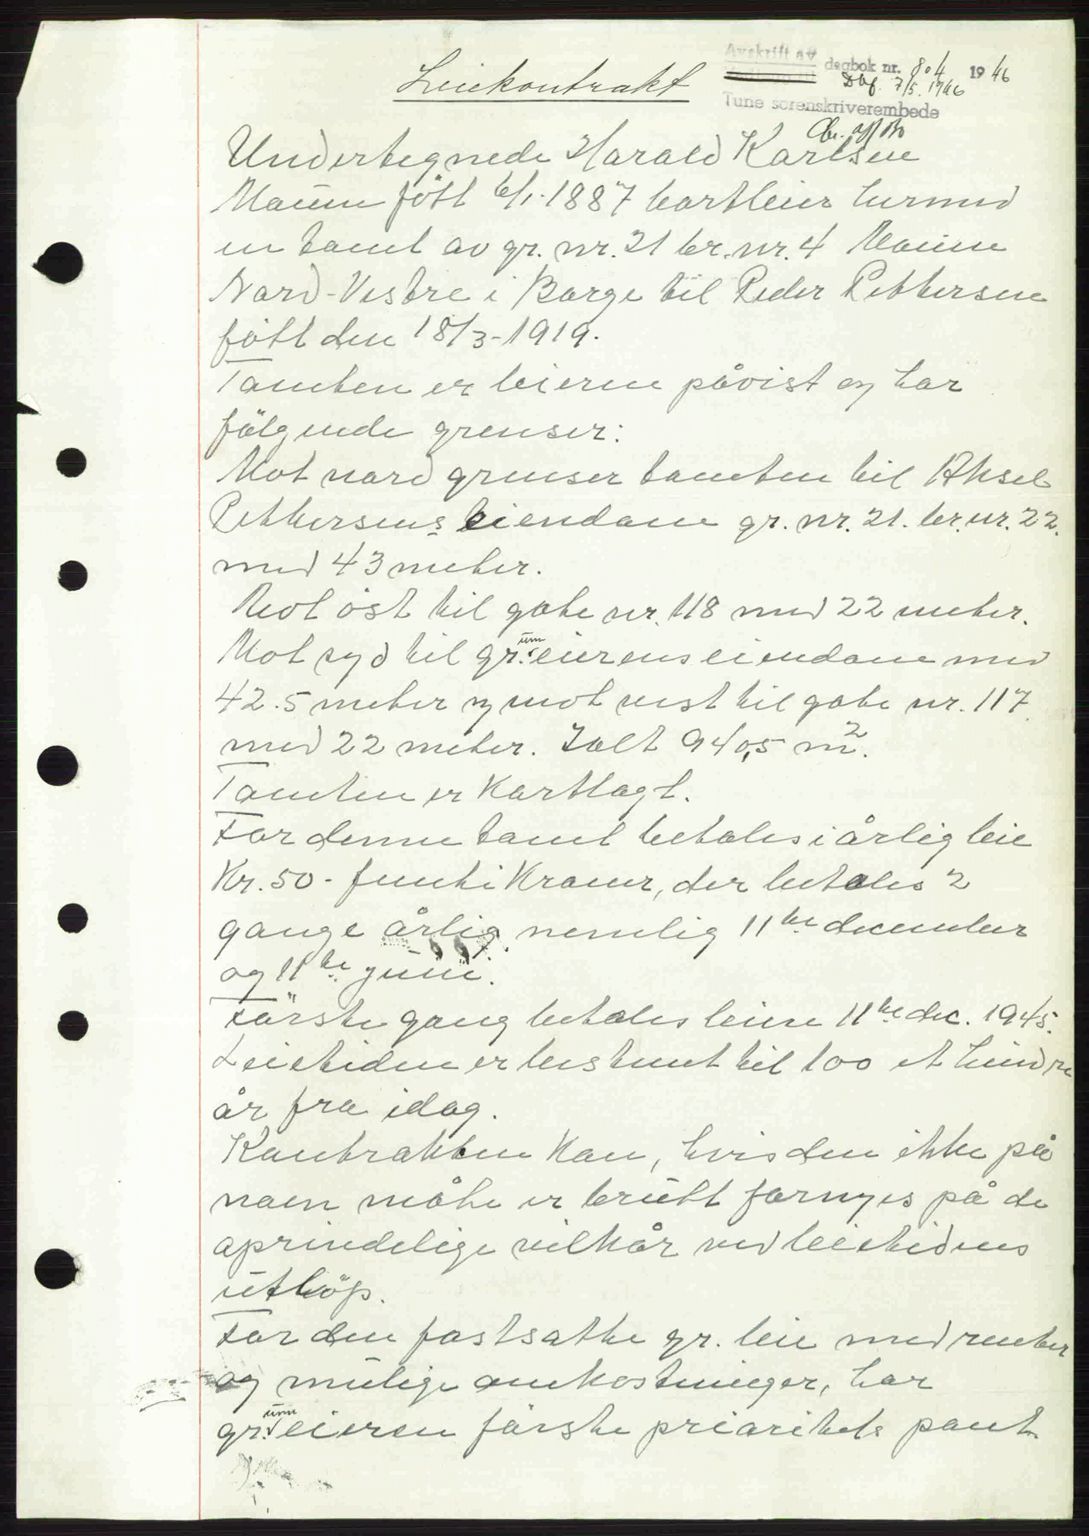 Avskrift av
dagbok nr. 804 1946
Dbf. 7/5. 1946
Tune sorenskriverembede
Leiekontrakt
Undertegnede Harald Karlsen
Maum fött 6/1-1887 bortleier hermed
en tomt av gr. nr. 21 br. nr. 4 Maum
Nord-Vestre i Borge til Peder Pettersen
fött den 18/3-1919.
Tomten er leieren påvist og har
fölgende grenser:
Mot nord grenser tomten til Aksel
Pettersens eiendom gr. nr. 21. br. nr. 22.
med 43 meter.
Mot öst til gate nr. 118 med 22 meter.
Mot syd til gr.unneierens eiendom med
42.5 meter og mot vest til gate nr. 117
med 22 meter. Ialt 940,5 m2.
Tomten er kartlagt.
For denne tomt betales i årlig leie
Kr. 50- femti Kroner, der betales 2
gange årlig. nemlig 11te december
og 11te juni.
Förste gang betales leien 11te dec. 1945.
Leietiden er bestemt til 100 et hundre
år fra idag.
Kontrakten kan, hvis den ikke på
noen måte er brutt fornyes på de
oprindelige vilkår ved leietidens
utlöp.
For den fastsatte gr. leie med renter
og mulige omkostninger, har
gr.unneieren förste prioritets pant